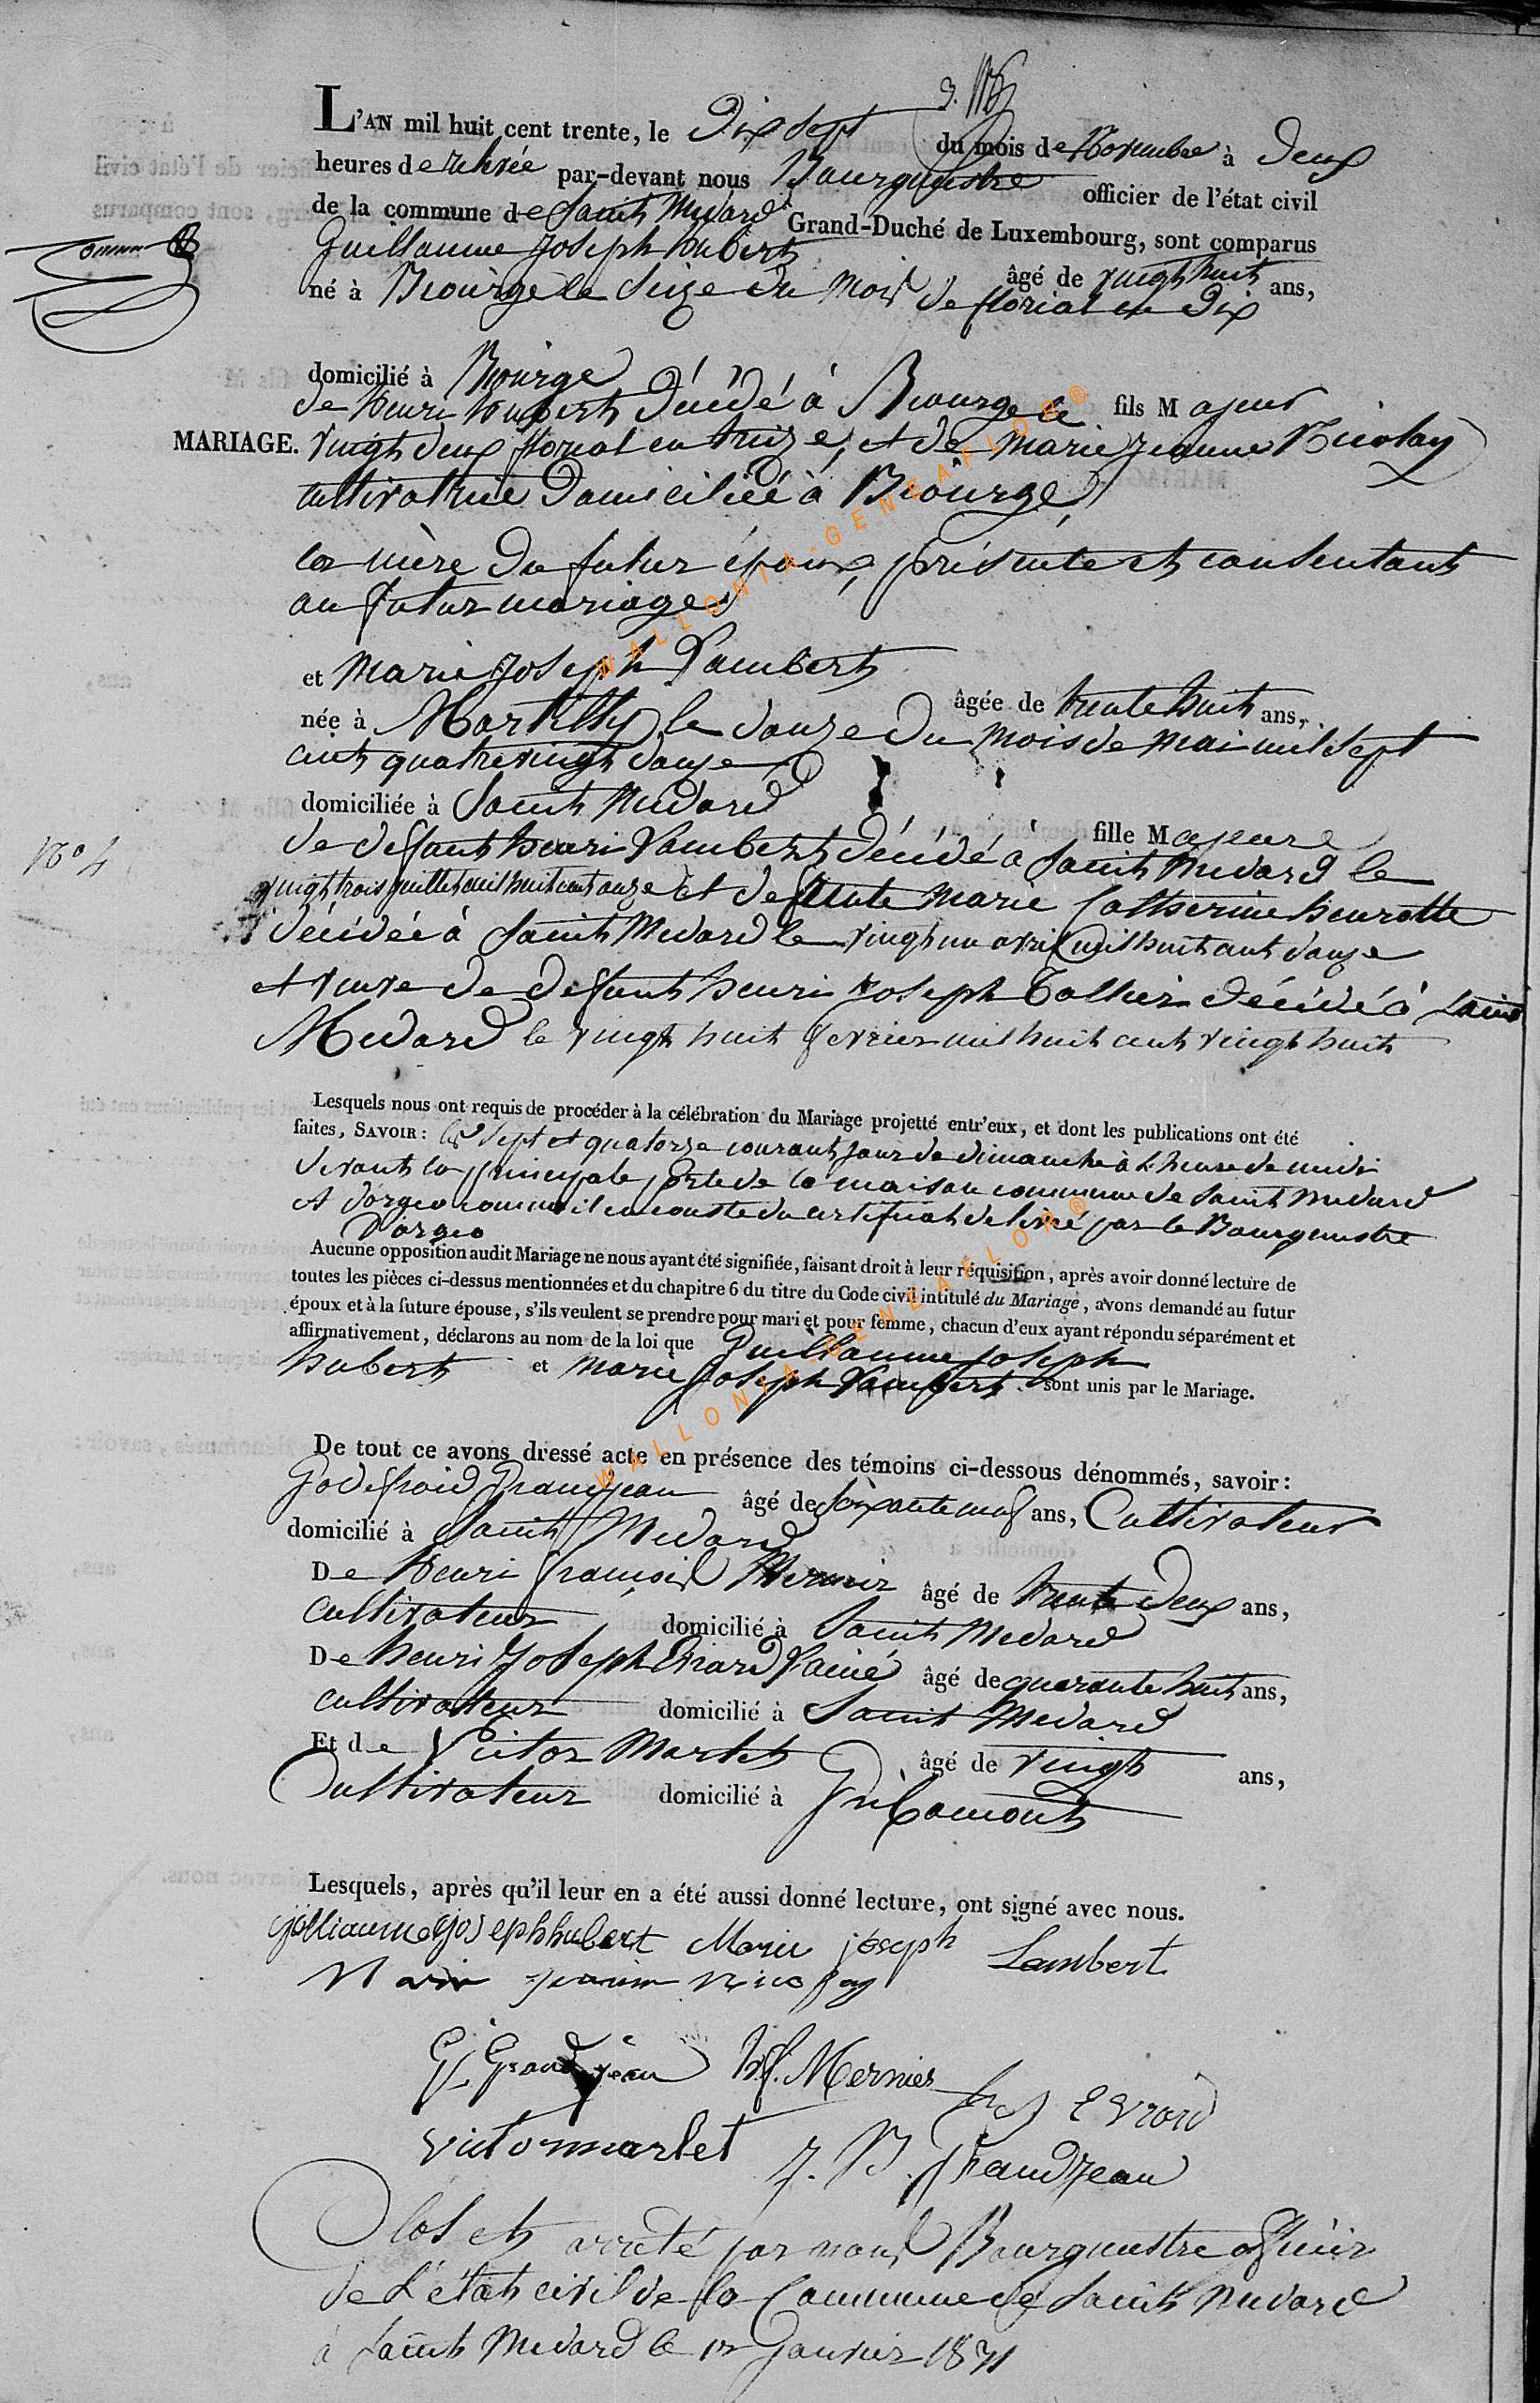 L'AN mil huit cent trente, le Dix Sept du mois de Novembre à deux
heures de relevée par-devant nous Bourguemestre officier de l'état civil
de la commune de Saint Medard Grand-Duché de Luxembourg, sont comparus
Guillaume Joseph hubert âgé de vingt huit ans,
né à Biourge le Seize du mois de florial an Dix
domicilié à Biourge fils Majeur
de Henri hubert décédé à Biourge le
MARIAGE. vingt deux florial an treize, et de Marie Jeanne Nicolay
cultivatrice domiciliée à Biourge,
la mère du futur époux, présente et consentant
au futur mariage
et Marie Joseph Lambert âgée de trente huit ans,
née à Martilly le douze du mois de mai mil Sept
cent quatrevingt douze
domiciliée à Saint Medard fille Majeure
N° 4
de defunt henri Lambert décédé à Saint Medard le
vingt trois juillet mil huit cent onze et de feute Marie Catherine henrotte
décédée à Saint Medard le vingt un avril mil huit cent douze
et veuve de defunt henri Joseph Collin décédé à Saint
Medard le vingt huit fevrier mil huit cent vingt huit
Lesquels nous ont requis de procéder à la célébration du Mariage projetté entr'eux, et dont les publications ont été
faites, SAVOIR : les sept et quatorze courant jour de dimanche à l'heure de midi
devant la principale porte de la maison commune de Saint Medard
et d'orgeo comme il en conste du certificat delivré par le Bourguemestre
D'orgeo
Aucune opposition audit Mariage ne nous ayant été signifiée, faisant droit à leur réquisition, après avoir donné lecture de
toutes les pièces ci-dessus mentionnées et du chapitre 6 du titre du Code civil intitulé du Mariage, avons demandé au futur
époux et à la future épouse, s'ils veulent se prendre pour mari et pour femme, chacun d'eux ayant répondu séparément et
affirmativement, déclarons au nom de la loi que Guillaume Joseph
hubert et Marie Joseph Lambert sont unis par le Mariage.
De tout ce avons dressé acte en présence des témoins ci-dessous dénommés, savoir :
Godefroid Grandjean âgé de soixante neuf ans, Cultivateur
domicilié à Saint Medard
De Henri françois Mernier âgé de trente deux ans,
cultivateur domicilié à Saint Medard
De henri Joseph Evrard l'ainé âgé de quarante huit ans,
cultivateur domicilié à Saint Medard
Et de Victor Martet âgé de vingt ans,
Cultivateur domicilié à Gribomont
Lesquels, après qu'il leur en a été aussi donné lecture, ont signé avec nous.
Marie joseph Lambert
G. Grandjean h.f. Mernier
Evrard
Victor martet J. B. Grandjean
Clos et arreté par nous Bourguemestre officier
de l'état civil de la Commune de Saint Medard
à Saint Medard le 1er Janvier 1831
WALLONIA-GENEAFLOR®
WALLONIA-GENEAFLOR®